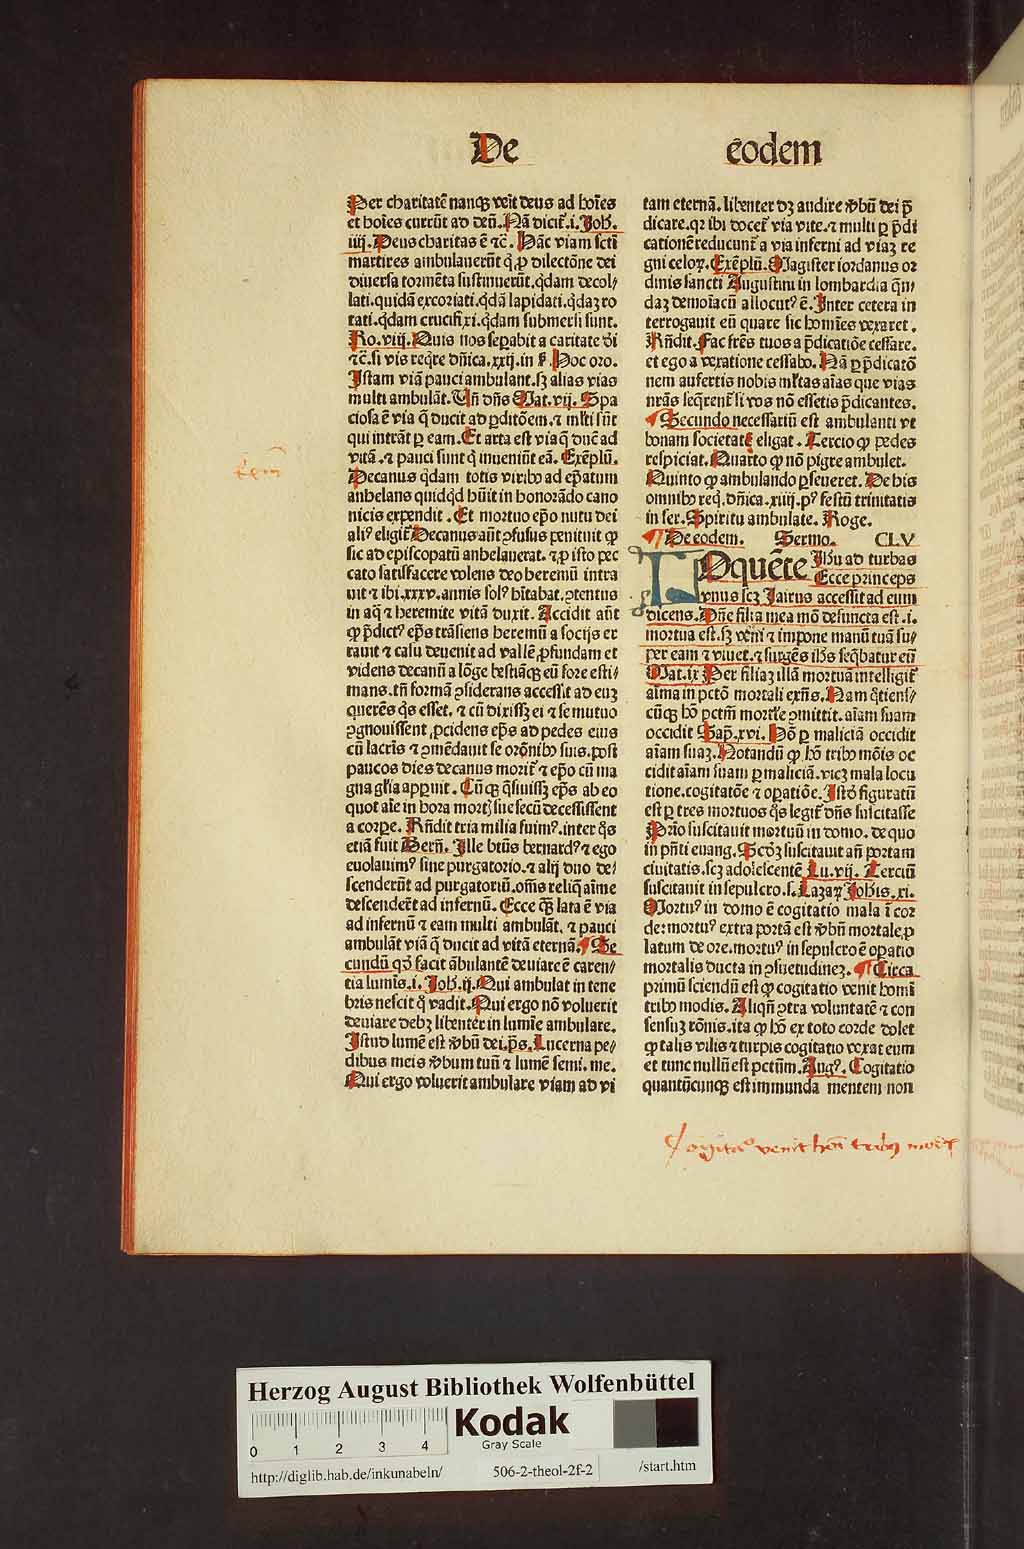 De eodem
Per charitatē nanqꝫ veīt deus ad hoīes
et hoīes currūt ad deū. Nā dicit̄.i. Joh̄.
iiij. Deus charitas ē ⁊c̄. Hāc viam sctī
martires ambulauerūt q̄ ꝓ dilectōne dei
diuersa tormēta sustinuerūt. q̄dam decol/
lati. quidā excoriati. q̄dā lapidati. q̄daꝫ ro
tati. q̄dam crucifixi. q̄dam submersi sunt.
Ro. viij. Quis nos seꝑabit a caritate di
⁊c̄. si vis reqre dn̄ica. xxij. in
Hoc oro.
Istam viā pauci ambulant. sꝫ alias vias
multi ambulāt. Un̄ dn̄s Mat. vij. Spa
ciosa ē via q̄ ducit ad ꝑditōem. ⁊ ml̄ti sūt
qui intrāt ꝑ eam. Et arta est via q̄ ducit ad
vitā. ⁊ pauci sunt q̄ inueniūt eā. Exēplū.
Decanus q̄dam totis viribꝰ ad ep̄atum
anhelans quidqd hūit in honorādo cano
nicis expendit. Et mortuo ep̄o nutu dei
aliꝰ eligit̄ Decanus aūt ꝯfusus penituit ꝙ
sic ad episcopatū anhelauerat. ⁊ ꝓ isto pec
cato satisfacere volens deo heremū intra
uit ⁊ ibi. xxxv. annis solꝰ hītabat. ꝯtentus
in aq̄ ⁊ heremite vitā duxit. Accidit aūt
ꝙ p̄dictꝰ ep̄s trāsiens heremū a socijs er
rauit ⁊ casu deuenit ad vallē ꝓfundam et
videns decanū a lōge bestiāqꝫ eū fore esti/
mans. tn̄ formā ꝯsiderans accessit ad euꝫ
querēs q̄s esset. ⁊ cū dixissꝫ ei ⁊ se mutuo
ꝯgnouissent ꝓcidens ep̄s ad pedes eius
cū lacrīs ⁊ ꝯmēdauit se orōnibꝰ suis. post
paucos dies decanus morit̄ ⁊ ep̄o cū ma
gna gl̄ia apparuit. Cūqꝫ q̄siuissꝫ ep̄s ab eo
quot aīe in hora mortꝭ sue secū decessissent
a corpe. Rn̄dit tria milia fuimꝰ. inter q̄s
etiā fuit Bern̄. Ille btūs bernardꝰ ⁊ ego
euolauimꝰ sine purgatorio. ⁊ alij duo de/
scenderūt ad purgatoriū. om̄s reliq̄ aīme
descenderūt ad infernū. Ecce qꝫ lata ē via
ad infernū ⁊ eam multi ambulāt. ⁊ pauci
ambulāt viā q̄ ducit ad vitā eternā. ¶ Se
cundū qd̄ facit ābulantē deuiare ē caren/
tia lumīs. i. Joh̄. ij. Qui ambulat in tene
bris nescit q̄ vadit. Qui ergo nō voluerit
deuiare debꝫ libenter in lumīe ambulare.
Istud lumē est v̄bū dei. ps̄. Lucerna pe/
dibus meis v̄bum tuū ⁊ lumē semi. me.
Qui ergo voluerit ambulare viam ad vi
tam eternā. libenter dꝫ audire v̄bū dei p̄
dicare. qꝛ ibi docet̄ via vite. ⁊ multi ꝑ p̄di
cationē reducunt̄ a via inferni ad viaꝫ re
gni celoꝝ. Exēplū. Magister iordanus or
dinis sancti Augustini in lombardia q̄n/
daꝫ demoīacū allocutꝰ ē. Inter cetera in
terrogauit eū quare sic homīes vexaret.
Rn̄dit. Fac fr̄es tuos a p̄dicatiōe cessare.
et ego a vexatione cessabo. Nā ꝑ p̄dicatō
nem aufertis nobis ml̄tas aīas que vias
nr̄as seq̄rent̄ si vos nō essetis p̄dicantes.
¶ Secundo necessariū est ambulanti vt
bonam societatē eligat. Tercio ꝙ pedes
respiciat. Quarto ꝙ nō pigre ambulet.
Quinto ꝙ ambulando ꝑseueret. De his
omnibꝰ req̄. dn̄ica. xiiij. pꝰ festū trinitatis
in ser. Spiritu ambulate. Roge.
¶ De eodem. Sermo. CLV
LOquēte Ihū ad turbas
Ecce princeps
vnus scꝫ Jairus accessit ad eum
dicens. Dn̄e filia mea mō defuncta est. i.
mortua est. sꝫ veni ⁊ impone manū tuā su/
per eam ⁊ viuet. ⁊ surgēs ih̄s seq̄batur eū
Mat. ix Per filiaꝫ illā mortuā intelligit̄
aīma in pctō mortali exn̄s. Nam q̄tiens/
cūqꝫ hō pctm̄ mortl̄e ꝯmittit. aīam suam
occidit Sap̄. xvi. Hō ꝑ maliciā occidit
aīam suaꝫ. Notandū ꝙ hō tribꝰ mōis oc
cidit aīam suam ꝑ maliciā. vicꝫ mala locu
tione. cogitatōe ⁊ oꝑatiōe. Istōꝝ figuratū
est ꝑ tres mortuos q̄s legit̄ dn̄s suscitasse
Prīo suscitauit mortuū in domo. de quo
in pn̄ti euang. Scd̄o suscitauit añ portam
ciuitatis. scꝫ adolescentē Lu. vij. Terciū
suscitauit in sepulcro. s. Lazaꝝ Johīs. xi.
Mortuꝰ in domo ē cogitatio mala ī cor
de: mortuꝰ extra portā est v̄bū mortale ꝓ
latum de ore. mortuꝰ in sepulcro ē oꝑatio
mortalis ducta in ꝯsuetudineꝫ. ¶ Circa
primū sciendū est ꝙ cogitatio venit homī
tribꝰ modis. Aliqn̄ ꝯtra voluntatē ⁊ con
sensuꝫ rōnis. ita ꝙ hō ex toto corde dolet
ꝙ talis vilis ⁊ turpis cogitatio vexat eum
et tunc nullū est pctūm. Augꝰ. Cogitatio
quantūcunqꝫ est immunda mentem non
Cogitatᵒ venit hoī tribꝰ modis
Herzog August Bibliothek Wolfenbüttel
0 1 2 3 4
Kodak
Gray Scale
http://diglib.hab.de/inkunabeln/ 506-2-theol-2f-2 /start.htm